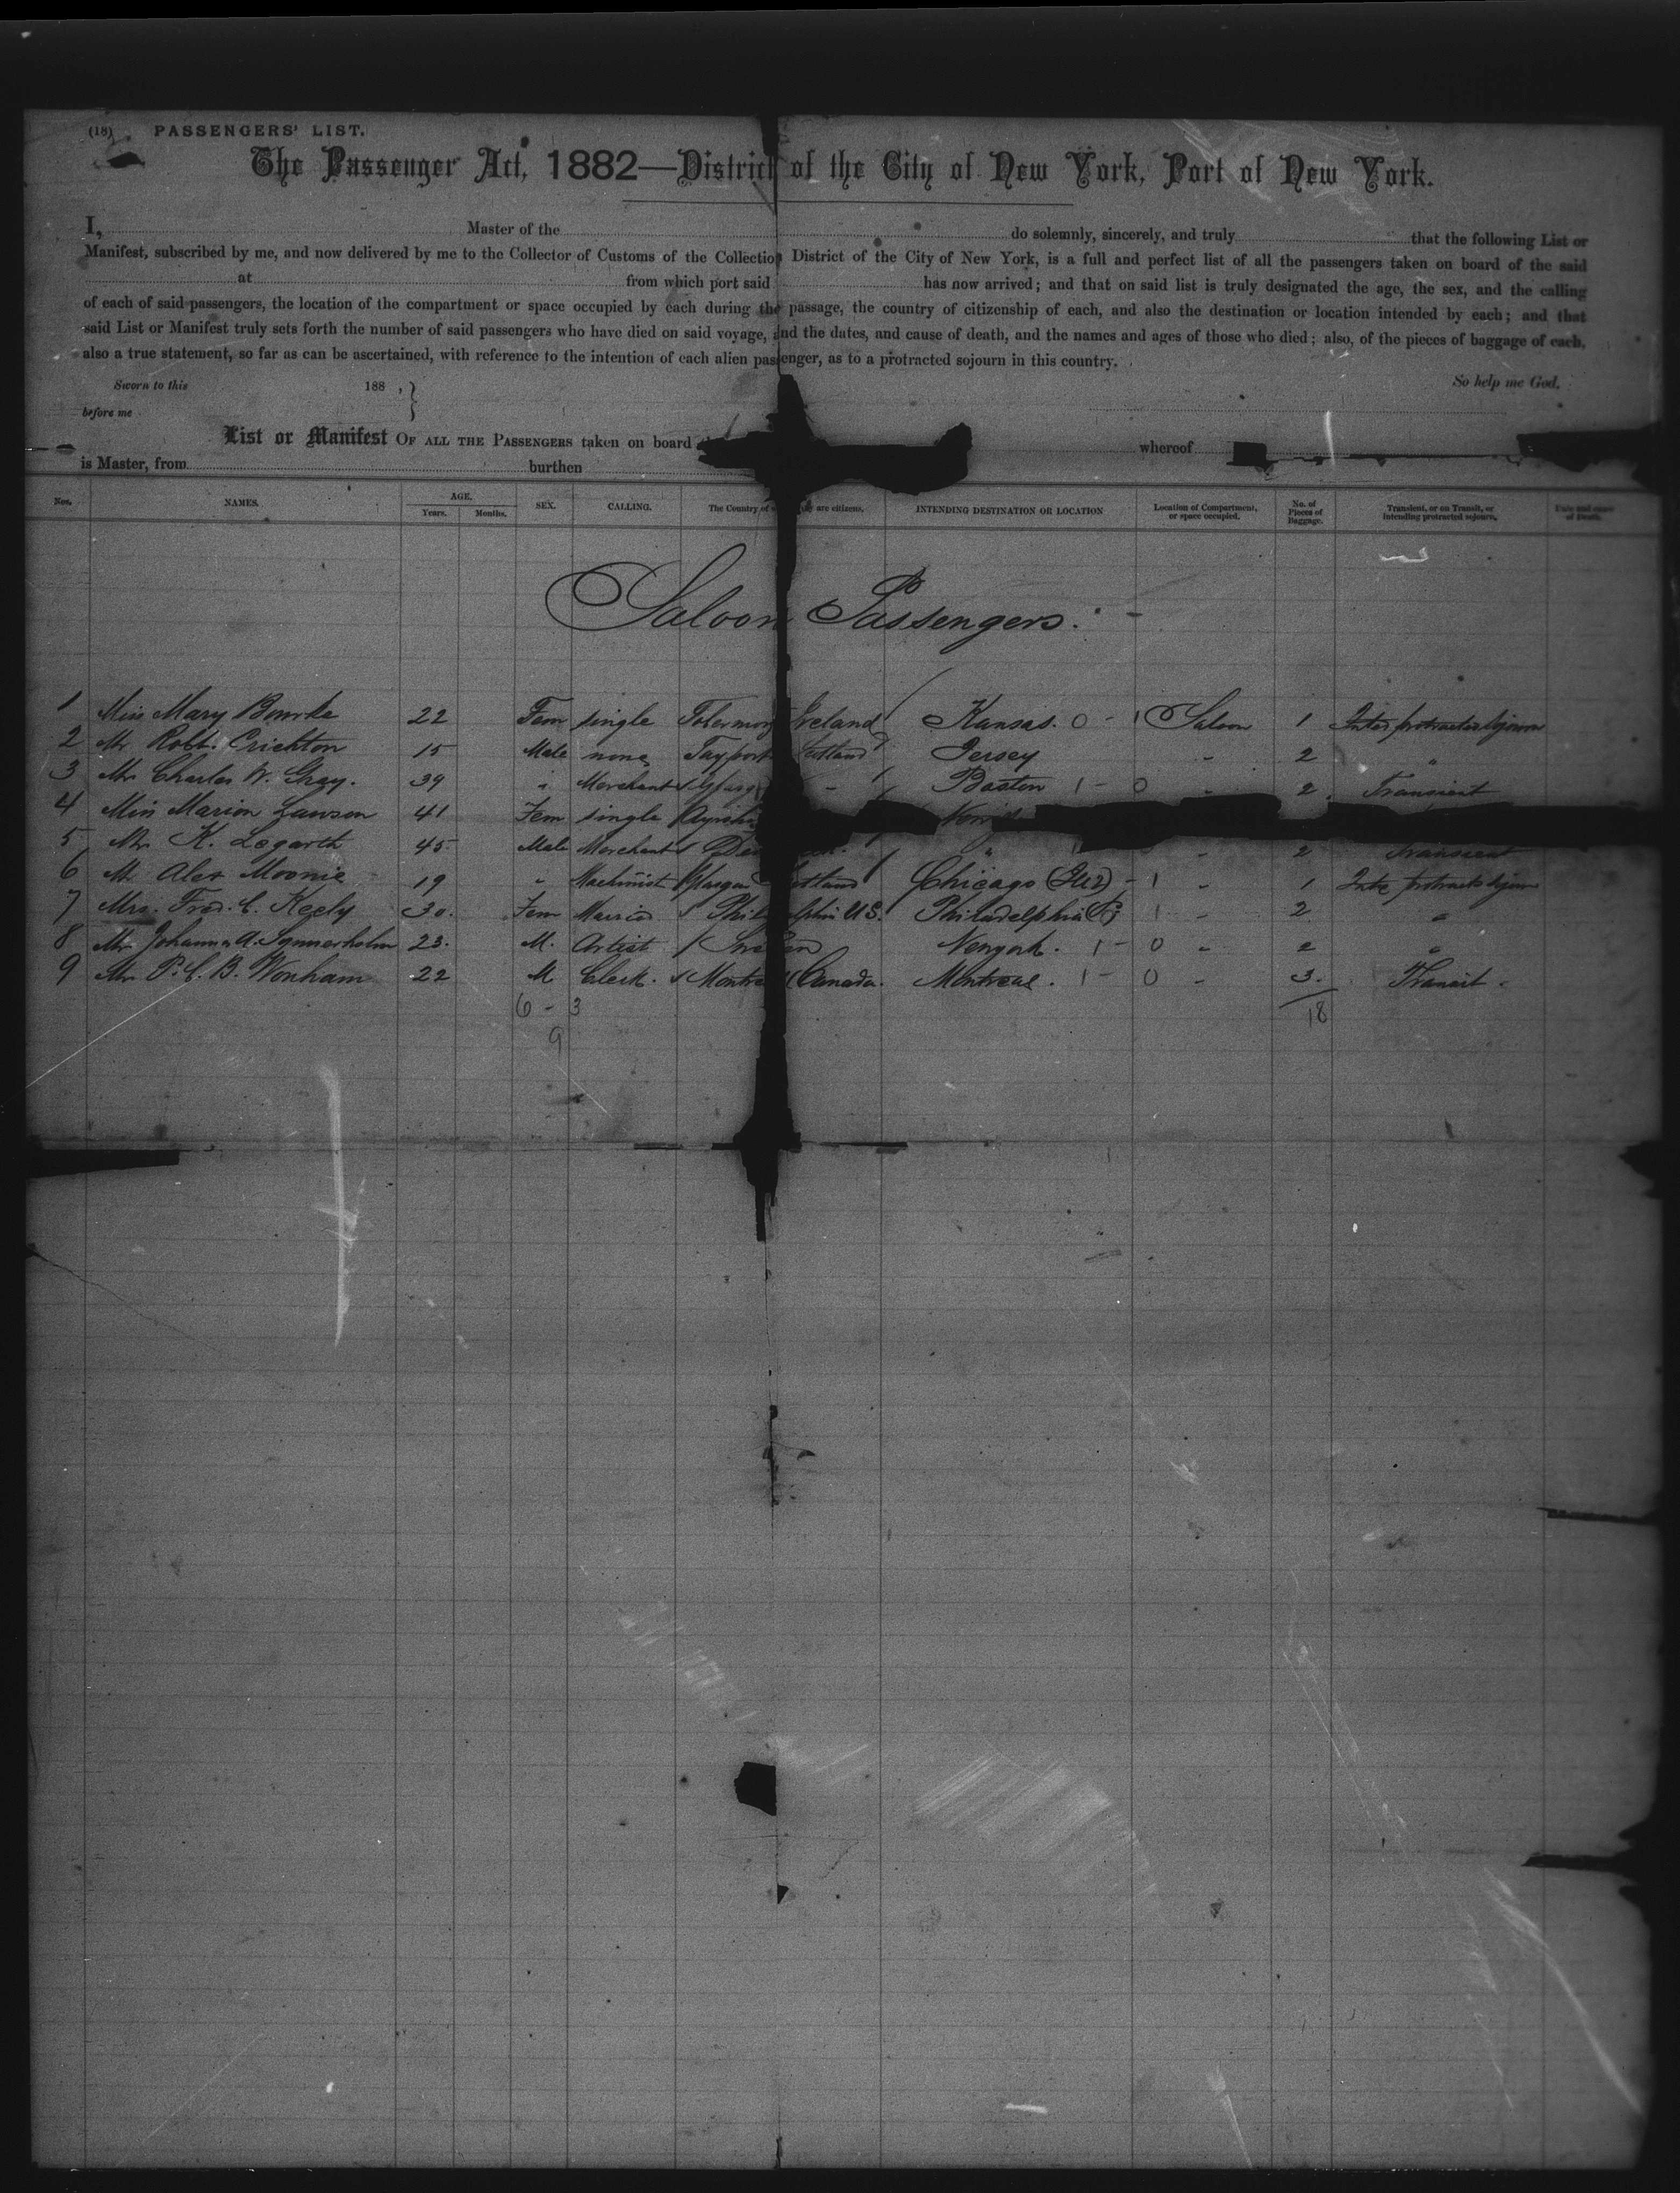 (18) PASSENGERS' LIST.
The Passenger Act, 1882—District of the City of New York, Port of New York.
I, Master of the do solemnly, sincerely, and truly that the following List or
Manifest, subscribed by me, and now delivered by me to the Collector of Customs of the Collection District of the City of New York, is a full and perfect list of all the passengers taken on board of the said
at from which port said has now arrived; and that on said list is truly designated the age, the sex, and the calling
of each of said passengers, the location of the compartment or space occupied by each during the passage, the country of citizenship of each, and also the destination or location intended by each; and that
said List or Manifest truly sets forth the number of said passengers who have died on said voyage, and the dates, and cause of death, and the names and ages of those who died; also, of the pieces of baggage of each,
also a true statement, so far as can be ascertained, with reference to the intention of each alien passenger, as to a protracted sojourn in this country.
So help me God.
Sworn to this 188 , }
before me
List or Manifest OF ALL THE PASSENGERS taken on board whereof
is Master, from burthen
Nos. NAMES. AGE. Years. Months. SEX. CALLING. The Country of are citizens. INTENDING DESTINATION OR LOCATION Location of Compartment, or space occupied. No. of Pieces of Baggage. Transient, or on Transit, or intending protracted sojourn. Date and cause of Death.
Saloon Passengers.
1 Miss Mary Bourke 22 Fem single Ireland Kansas. 0 - 1 Saloon 1
2 Mr Robt. Crichton 15 Male none Tayport Scotland Jersey " 2 "
3 Mr Charles W. Gray. 39 " Merchant " Boston 1 - 0 " 2 Transient
4 Miss Marion Lawson 41 Fem single
5 Mr K. Logarth 45 Male Merchant " 2 Transient
6 Mr Alex Moonie 19 " Machinist Glasgow Scotland Chicago - 1 " 1
7 Mrs. Fred. C. Keely 30. Fem Married Philadelphia U.S. Philadelphia 1 " 2 "
8 Mr Johannes A. Synnerholm 23. M. Artist Sweden Newyork. 1 - 0 " 2 "
9 Mr P. C. B. Wonham 22 M Clerk. Montreal Canada. Montreal. 1 - 0 " 3. Transit.
6 - 3 18
9